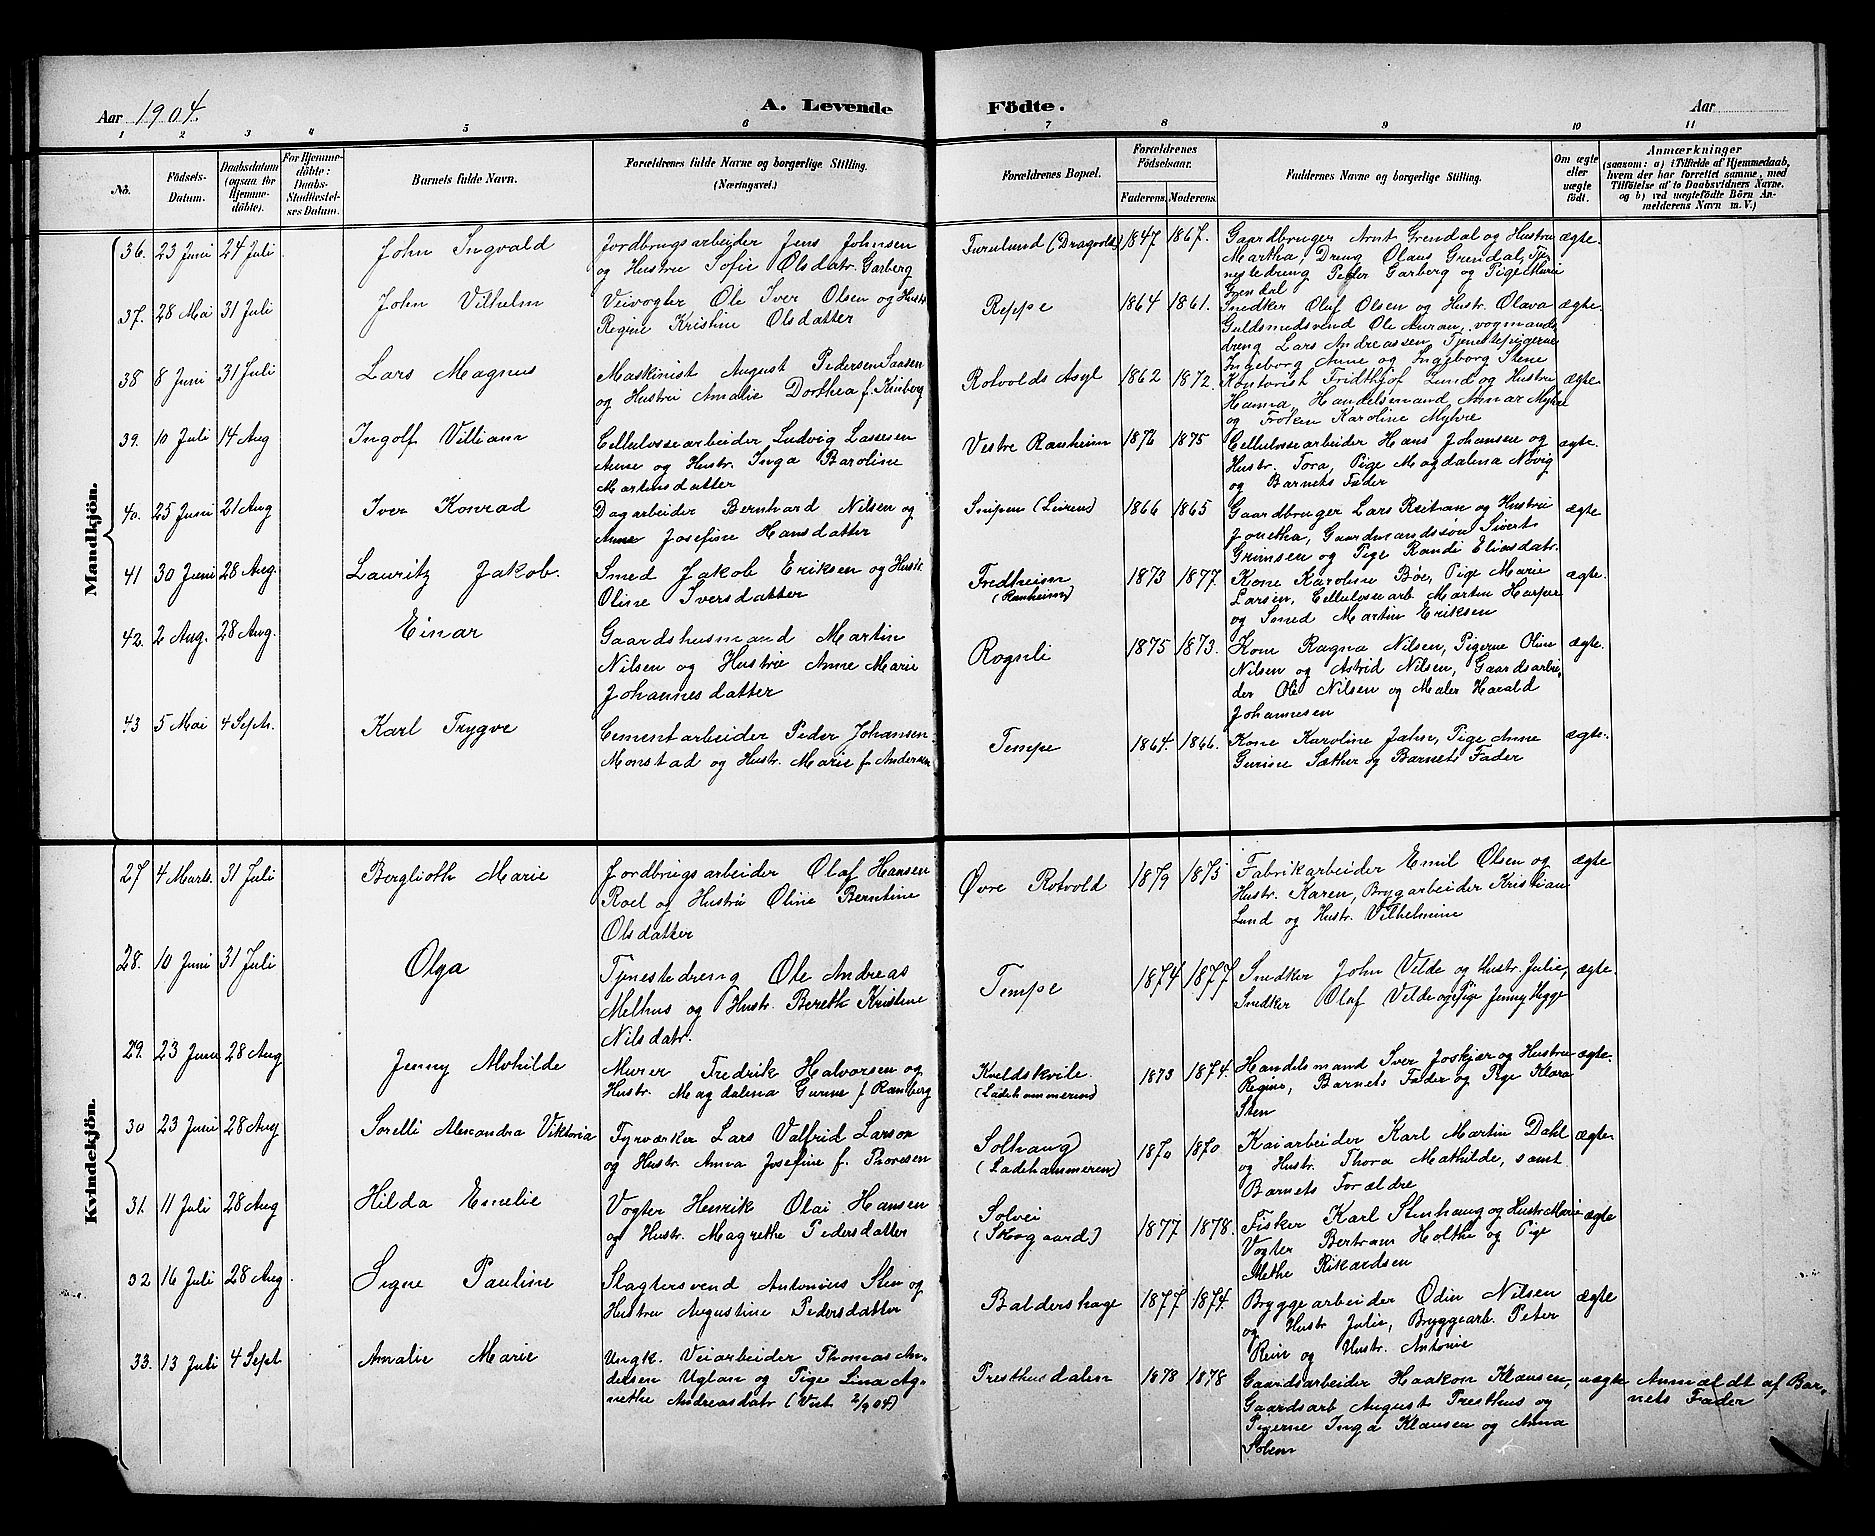 Aar 1904.
A. Levende
Födte.
Aar
1 2 3 4 5 6 7 8 9 10 11
No.
Födsels-
Datum.
Daabsdatum
(ogsaa for
Hjemme-
döbte).
For Hjemme-
döbte:
Daabs-
Stadfæstel-
ses Datum.
Barnets fulde Navn.
Forældrenes fulde Navne og borgerlige Stilling.
(Næringsvei.)
Forældrenes Bopæl.
Forældrenes
Födselsaar.
Faderens. Moderens.
Faddernes Navne og borgerlige Stilling.
Om ægte
eller
uægte
födt.
Anmærkninger
(saasom: a) i Tilfælde af Hjemmedaab,
hvem der har forrettet samme, med
Tilföielse af to Daabsvidners Navne,
og b) ved uægtefödte Börn An-
melderens Navn m. V.)
Mandkjön.
36. 23 Juni 24 Juli
John Ingvald
Jordbrugsarbeider Jens Johnsen
og Hustru Sofie Olsdatr. Garberg
Furulund (Dragvold)
1847 1867.
Gaardbruger Arnt Grendal og Hustru
Martha, Dreng Olaus Grendal, Tje-
nestedreng Peter Garberg og Pige Marie
Grendal
ægte.
37. 28 Mai 31 Juli
John Vilhelm
Veivogter Ole Iver Olsen og Hustr.
Regine Kristine Olsdatter
Reppe
1864 1861.
Snedker Oluf Olsen og Hustr. Olava
Guldsmedsvend Ole Auran, vogmands
dreng Lars Andreassen, Tjenestepigerne
Ingeborg Anne og Ingeborg Stene
ægte.
38 8 Juni 31 Juli
Lars Magnus
Maskinist August Pedersen Saxsen
og Hustru Amalie Dorthea f. Kinberg
Rotvolds Asyl
1862 1872.
Kontorist Fridthjof Lund og Hustru
Hanna, Handelsmand Annar Myhre
og Frøken Karoline Myhre
ægte.
39. 10 Juli 14 Aug
Ingolf Villiam
Cellulosearbeider Ludvig Lassesen
Aune og Hustr. Inga Baroline
Martinsdatter
Vestre Ranheim
1876 1875
Cellulosearbeider Hans Johansen og
Hustr. Tora, Pige Magdalena Nøvig
og Barnets Fader
ægte.
40. 25 Juni 21 Aug
Iver Konrad
Dagarbeider Bernhard Nilsen og
Anne Josefine Hansdatter
Snipen (Leiren)
1866 1865
Gaardbruger Lars Reitan og Hustru
Jonetha, Gaardmandssøn Sivert
Grimsen og Pige Randi Eliasdatr.
ægte
41 30 Juni 28 Aug.
Lauritz Jakob.
Smed Jakob Eriksen og Hustr.
Oline Iversdatter
Fredheim
(Ranheim)
1873 1877.
Kone Karoline Bøe, Pige Marie
Larsen, Cellulosearb Martin Harper
og Smed Martin Eriksen
ægte.
42. 2 Aug. 28 Aug.
Einar
Gaardshusmand Martin
Nilsen og Hustru Anne Marie
Johannesdatter
Rognli
1875 1873.
Kone Ragna Nilsen, Pigerne Olin
Nilsen og Astrid Nilsen, Gaardsarbei-
der Ole Nilsen og Maler Harald
Johannesen
ægte.
43 5 Mai 4 Septr.
Karl Trygve
Cementarbeider Peder Johansen
Monstad og Hustr. Marie f. Andersen
Tempe
1864. 1866.
Kone Karoline Jahn, Pige Anne
Gurine Sæther og Barnets Fader
ægte.
Kvindekjön.
27 4 Marts. 31 Juli
Berglioth Marie
Jordbrugsarbeider Olaf Hansen
Roel og Hustru Oline Berntine
Olsdatter
Øvre Rotvold
1879 1875
Fabrikarbeider Emil Olsen og
Hustr. Karen, Brygarbeider Kristian
Lund og Hustr. Vilhelmine
ægte
28. 10 Juni 31 Juli
Olga
Tjenestedreng Ole Andreas
Melhus og Hustr. Bereth Kristine
Nilsdatr.
Tempe
1874 1877.
Snedker John Velde og Hustr. Julie,
Snedker Olaf Velde og Pige Jenny Hegge
ægte.
29. 23 Juni 28 Aug
Jenny Alvhilde
Murer Fredrik Halvorsen og
Hustr. Magdalena Gurine f. Ramberg
Kveldskvile.
(Ladehammeren)
1873 1874.
Handelsmand Iver Joskjær og Hustru
Regine, Barnets Fader og Pige Klara
Sten
ægte.
30 23 Juni 28 Aug
Sorelli Alexandra Viktoria
Fyrværker Lars Valfrid Larson
og Hustr. Anna Josefine f. Thoresen
Solhaug
(Ladehammeren)
1870 1870
Kaiarbeider Karl Martin Dahl
og Hustr. Thora Mathilde, samt
Barnets Forældre
ægte
31. 11 Juli 28 Aug
Hilda Emelie
Vogter Henrik Olai Hansen
og Hustr. Magrethe Pedersdatter
Solvei
(Skogaard.)
1877 1878.
Fisker Karl Stenhaug og Hustr. Marie
Vogter Bertram Holthe og Pige
Methe Rikardsen
ægte
32 16 Juli 28 Aug.
Signe Pauline
Slagtersvend Antonius Sten og
Hustru Augustine Pedersdatter
Baldershage
1877 1874.
Bryggearbeider Odin Nilsen
og Hustr Julie, Bryggearb. Peter
Rein og Hustr. Antonie
ægte
33. 13 Juli 4 Sept
Amalie Marie
Ungk. Veiarbeider Thomas An-
delsen Uglan og Pige Lina Ag-
nethe Andreasdatr (Viet 2/9 04)
Presthusdalen
1878 1878
Gaardsarbeider Haakon Klausen,
Gaardsarb August Presthus og
Pigerne Inga Klausen og Anna
Solem
uægte
Anmældt af Bar-
nets Fader